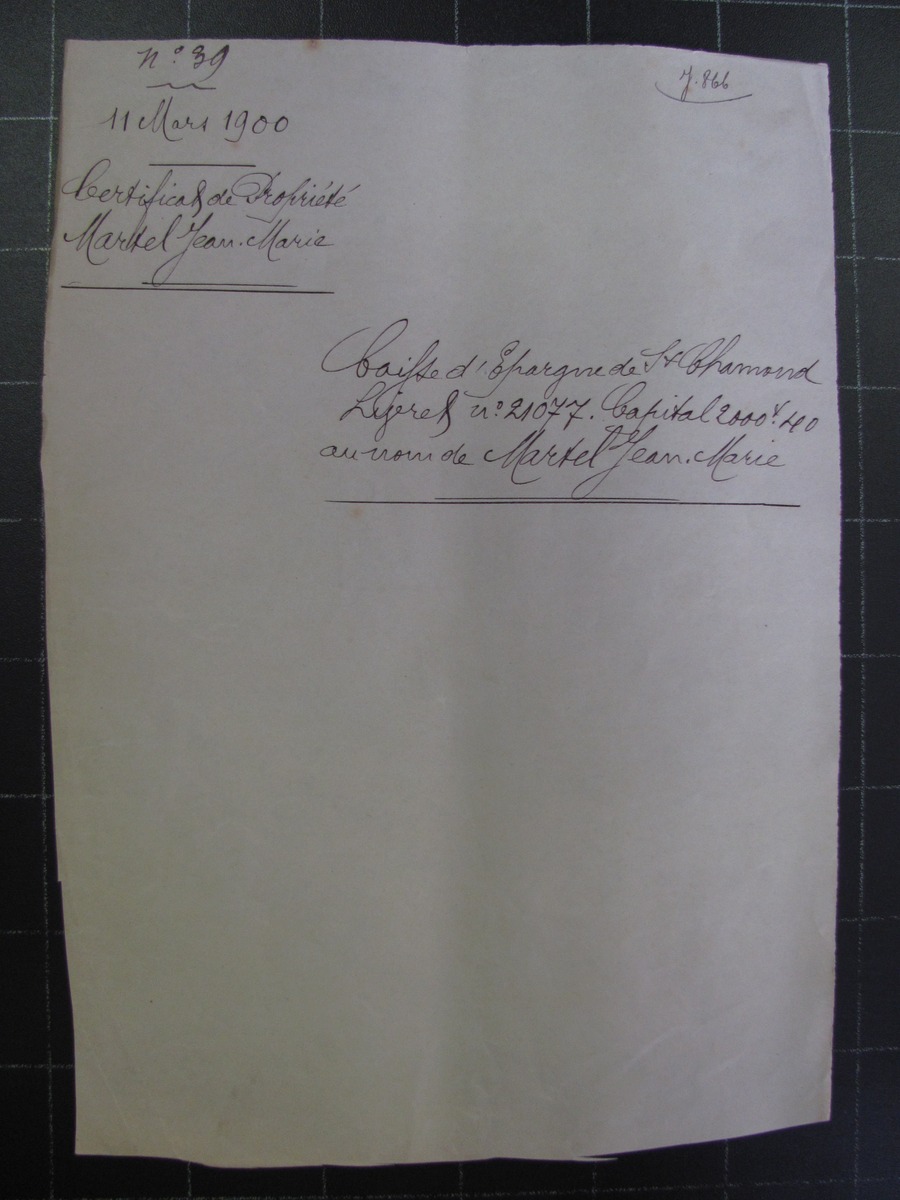 N° 39
J. 866
11 Mars 1900
Certificat de Propriété
Martel Jean-Marie
Caisse d'Epargne de St Chamond
Livret n° 21077. Capital 2000f.40
au nom de Martel Jean-Marie